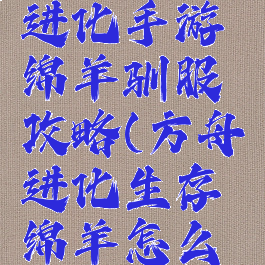 进化手游
绵羊驯服
攻略(方舟
进化生存
绵羊怎么